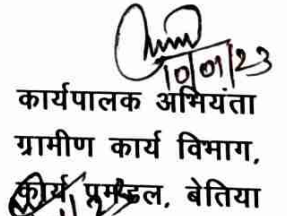 10/01/23
कार्यपालक अभियंता
ग्रामीण कार्य विभाग,
कार्य प्रमंडल, बेतिया